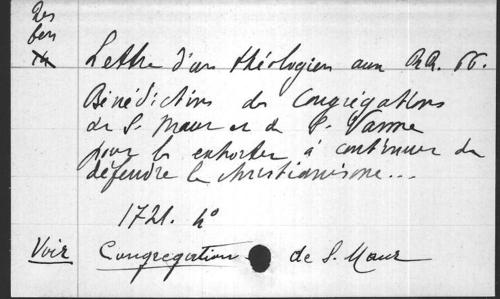 Lettre d'un théologien aux RR. PP.
Bénédictins des Congrégations
de S. Maur et de S. Vanne
pour les exhorter à continuer de
défendre le christianisme...
1721. 4°
Voir Congregation de S. Maur